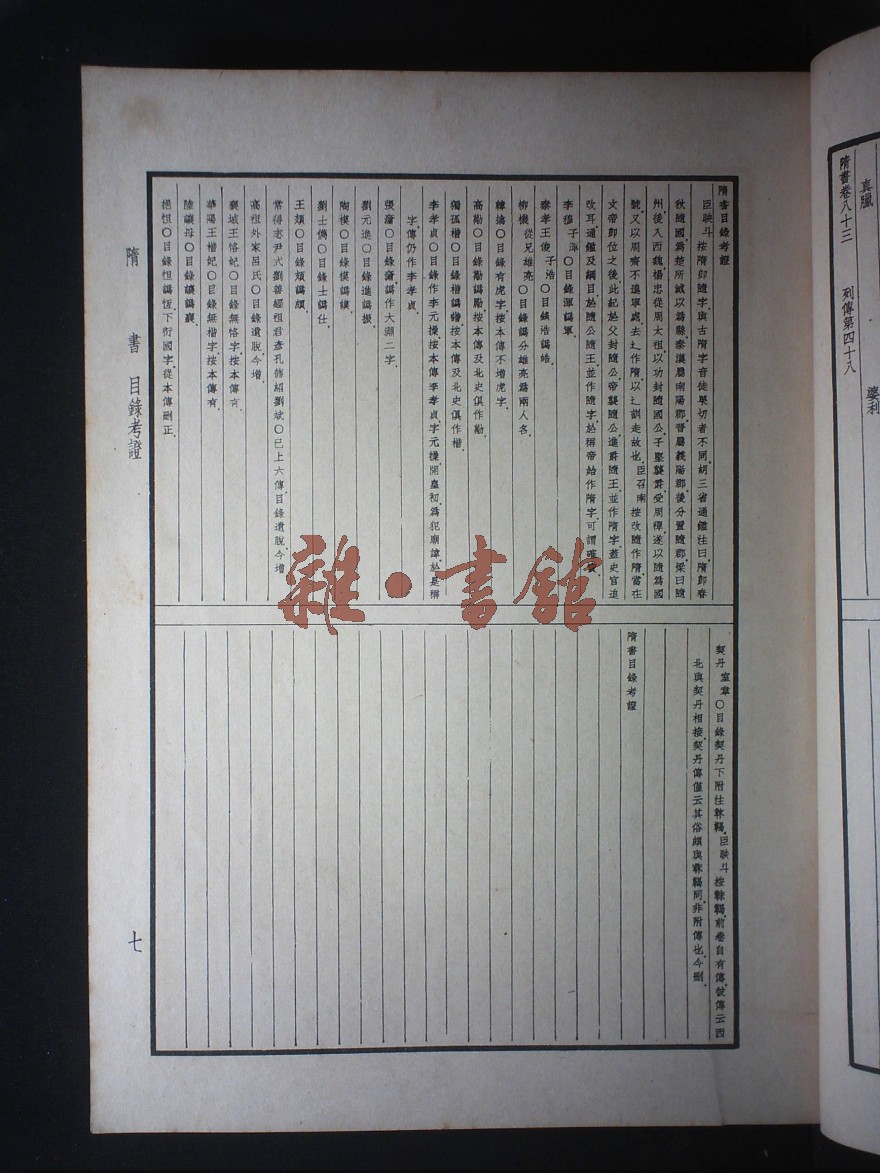 隋書目錄考證
臣映斗按隋即隨字與古隋字音徒果切者不同胡三省通鑑注曰隋即春
秋隨國為楚所滅以為縣秦漢屬南陽郡晉屬義陽郡後分置隨郡梁曰隨
州後入西魏楊忠從周太祖以功封隨國公子堅襲爵受周禪遂以隨為國
號又以周齊不遑寧處去辶作隋以辶訓走故也臣召南按改隨作隋當在
文帝即位之後此紀於父封隨公帝襲隨公進爵隨王並作隋字蓋史官追
改耳通鑑及綱目於隨公隨王並作隨字於稱帝始作隋字可謂
李穆子渾○目錄渾譌軍
秦孝王俊子浩○目錄浩譌皓
柳機從兄雄亮○目錄譌分雄亮為兩人名
韓擒○目錄有虎字按本傳不增虎字
高勱○目錄勱譌勵按本傳及北史俱作勱
獨孤楷○目錄楷譌 按本傳及北史俱作楷
李孝貞○目錄作李元操按本傳李孝貞字元操開皇初為犯廟諱於是稱
字傳仍作李孝貞
張奫○目錄奫譌作大淵二字
劉元進○目錄進譌振
陶模○目錄模譌謨
劉士儁○目錄士譌仕
王頍○目錄頍譌頗
常得志尹式劉善經祖君彥孔德紹劉斌○已上六傳目錄遺脫今增
高祖外家呂氏○目錄遺脫今增
襄城王恪妃○目錄無恪字按本傳有
華陽王楷妃○目錄無楷字按本傳有
陸讓母○目錄讓譌襄
挹怛○目錄怛譌恆下衍國字從本傳刪正
契丹室韋○目錄契丹下附注靺鞨臣映斗按靺鞨前卷自有傳彼傳云西
北與契丹相接契丹傳僅云其俗頗與靺鞨同非附傳也今刪
隋書目錄考證
隋書 目錄考證
七
雜·書館
隋書卷八十三 列傳第四十八
真臘 婆利